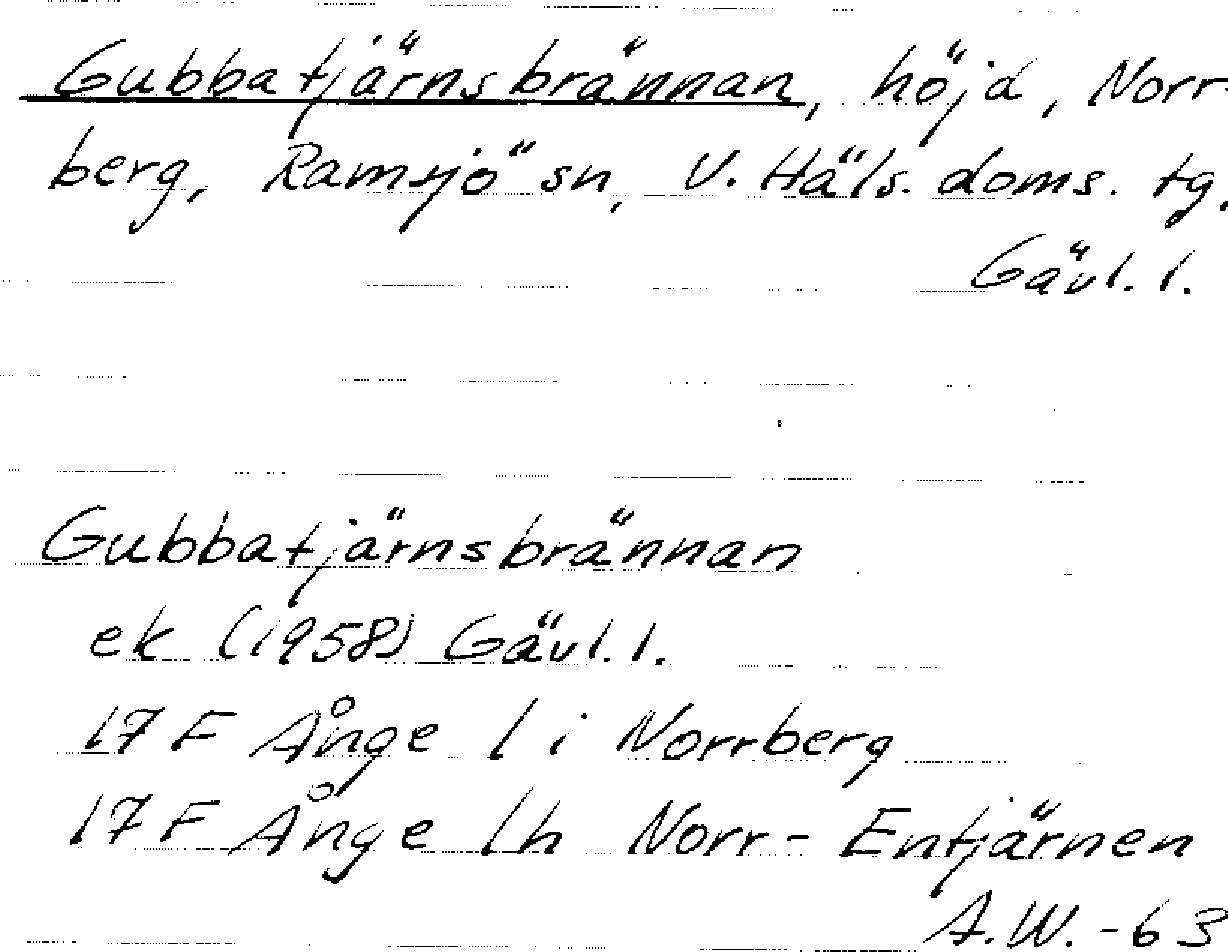 Gubbatjärnsbrännan, höjd, Norr-
berg, Ramsjö sn, V. Häls. doms. tg.
Gävl. l.
Gubbatjärnsbrännan
ek (1958) Gävl. l.
17 F Ånge 1 i Norrberg
17 F Ånge 1h Norr-Entjärnen
A.W. -63